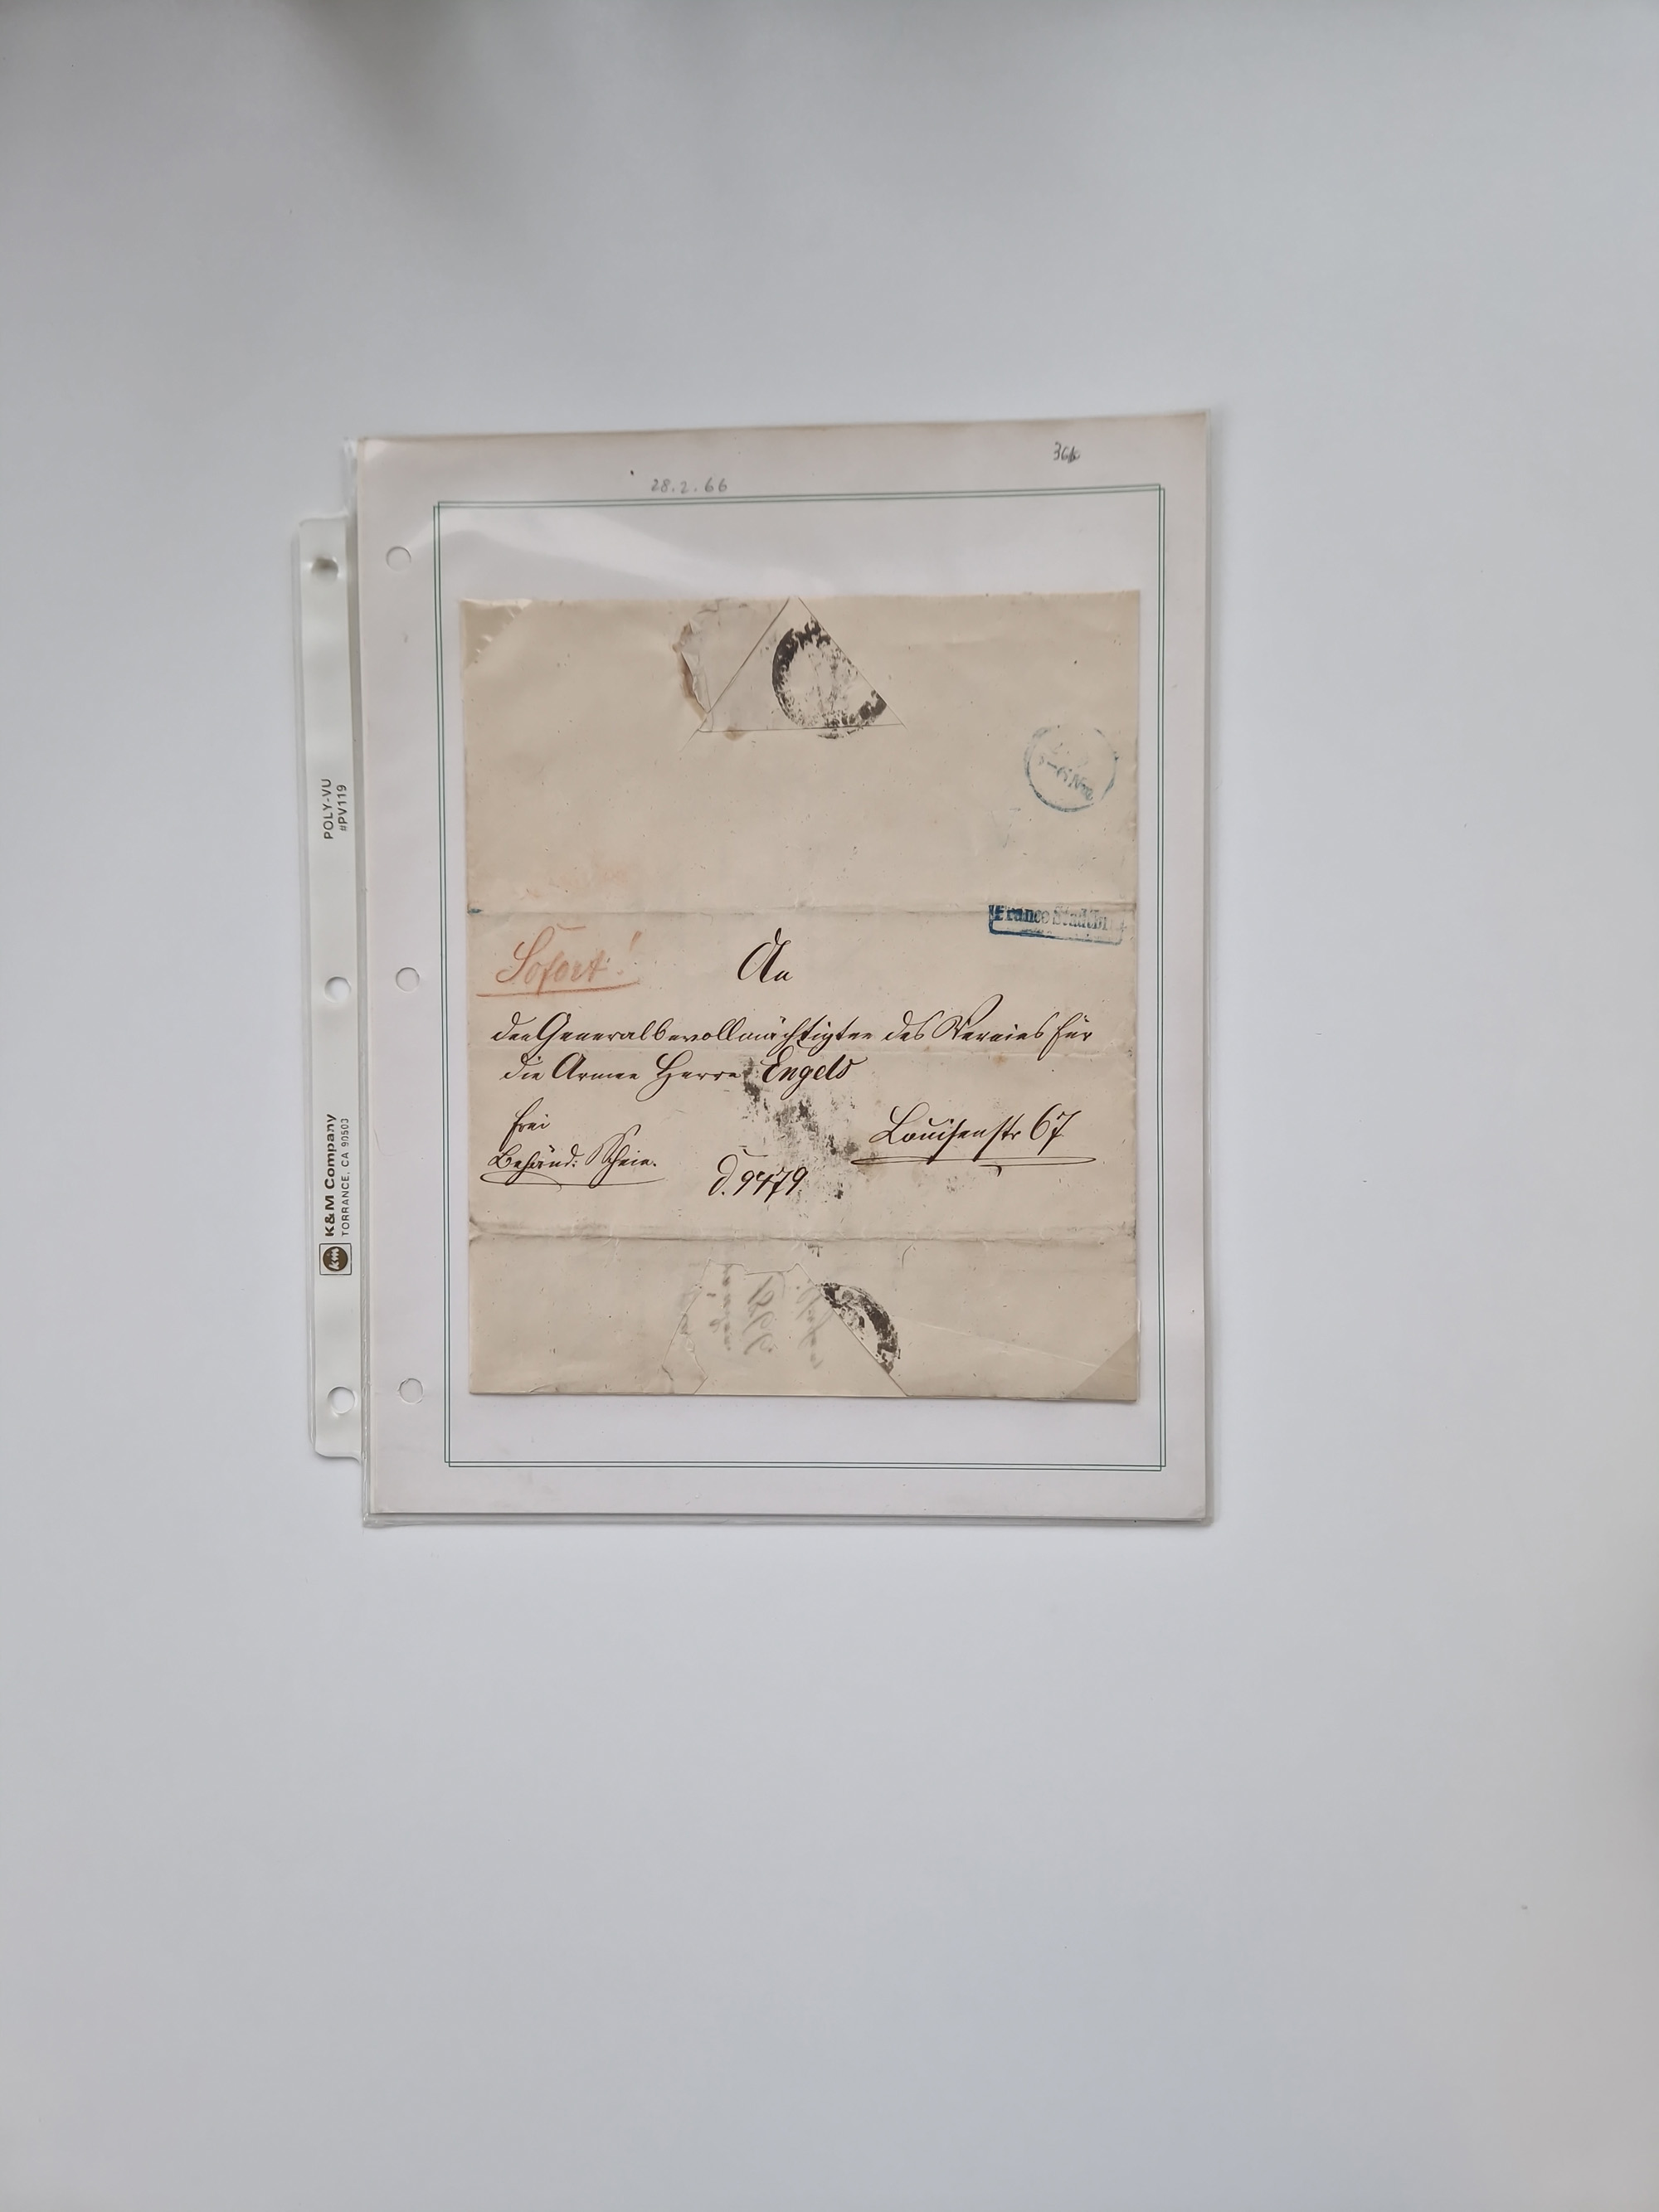 36
28.2.66
POLY-VU
#PV119
K&M Company
TORRANCE, CA 90503
km
Franco Stadtbrief
Sofort!
An
den Generalbevollmächtigten des Vereins für
die Armee Herrn Engels
frei
Behänd: Schein.
Louisenstr 67
J. 9479